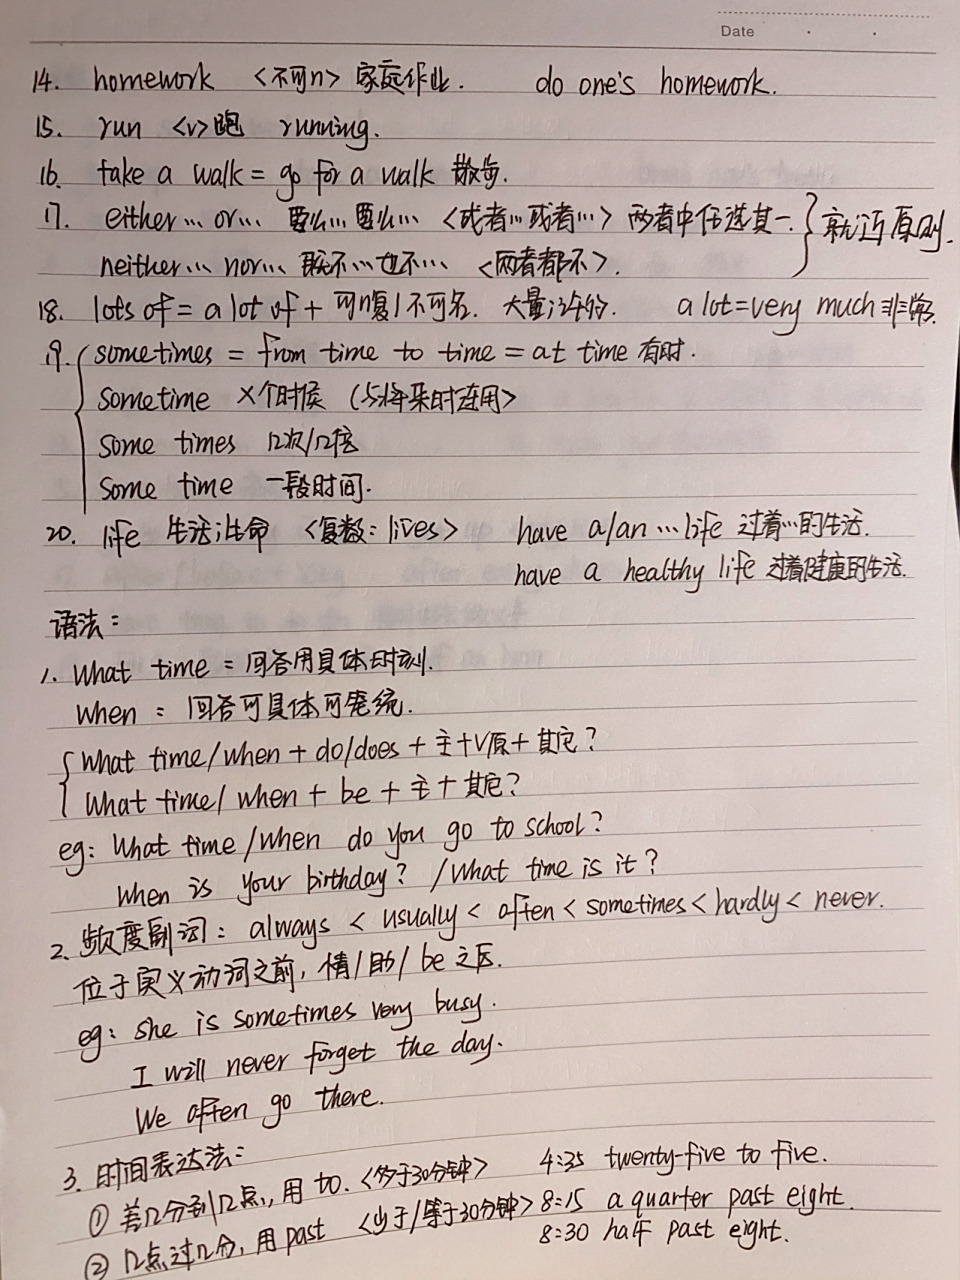 Date
14. homework <不可n> 家庭作业. do one's homework.
15. run <v>跑 running.
16. take a walk = go for a walk 散步.
17. either… or… 要么…要么… <或者…或者…> 两者中任选其一. } 就近原则.
neither… nor… 既不…也不… <两者都不>.
18. lots of = a lot of + 可n复/不可名. 大量;许多的. a lot=very much 非常.
19. { sometimes = from time to time = at time 有时.
sometime 某个时候 (与将来时连用>
some times 几次/几倍
some time 一段时间.
20. life 生活;生命 <复数: lives> have a/an …life 过着…的生活.
have a healthy life 过着健康的生活.
语法:
1. What time = 回答用具体时刻.
When = 回答可具体可笼统.
{ What time/when + do/does + 主+V原+ 其它?
What time/ when + be + 主 + 其它?
eg: What time /when do you go to school?
When is your birthday? /What time is it?
2. 频度副词: always < usually < often < sometimes < hardly < never.
位于实义动词之前, 情/助/ be 之后.
eg: she is sometimes very busy.
I will never forget the day.
We often go there.
3. 时间表达法:
① 差几分到几点, 用 to. <多于30分钟> 4:35 twenty-five to five.
② 几点过几分, 用 past <少于/等于30分钟> 8:15 a quarter past eight.
8:30 half past eight.